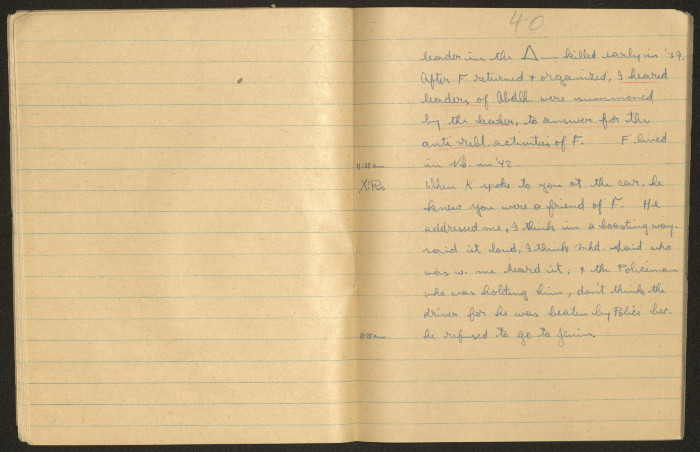 40
leader in the Δ — killed early in '39.
After F returned & organized, I heared
leaders of Abdlh. were summoned
by the leader, to answer for the
anti-rebl. activities of F. F lived
11:20 am in Nb. in '42.
X: Ps When K spoke to you at the car, he
knew you were a friend of F. He
addressed me, I think in a boasting way.
said it loud, I think Mhd. Said who
was w. me heard it, & the Policeman
who was holding him, don't think the
driver for he was beaten by Police bec.
he refused to go to Jenin.